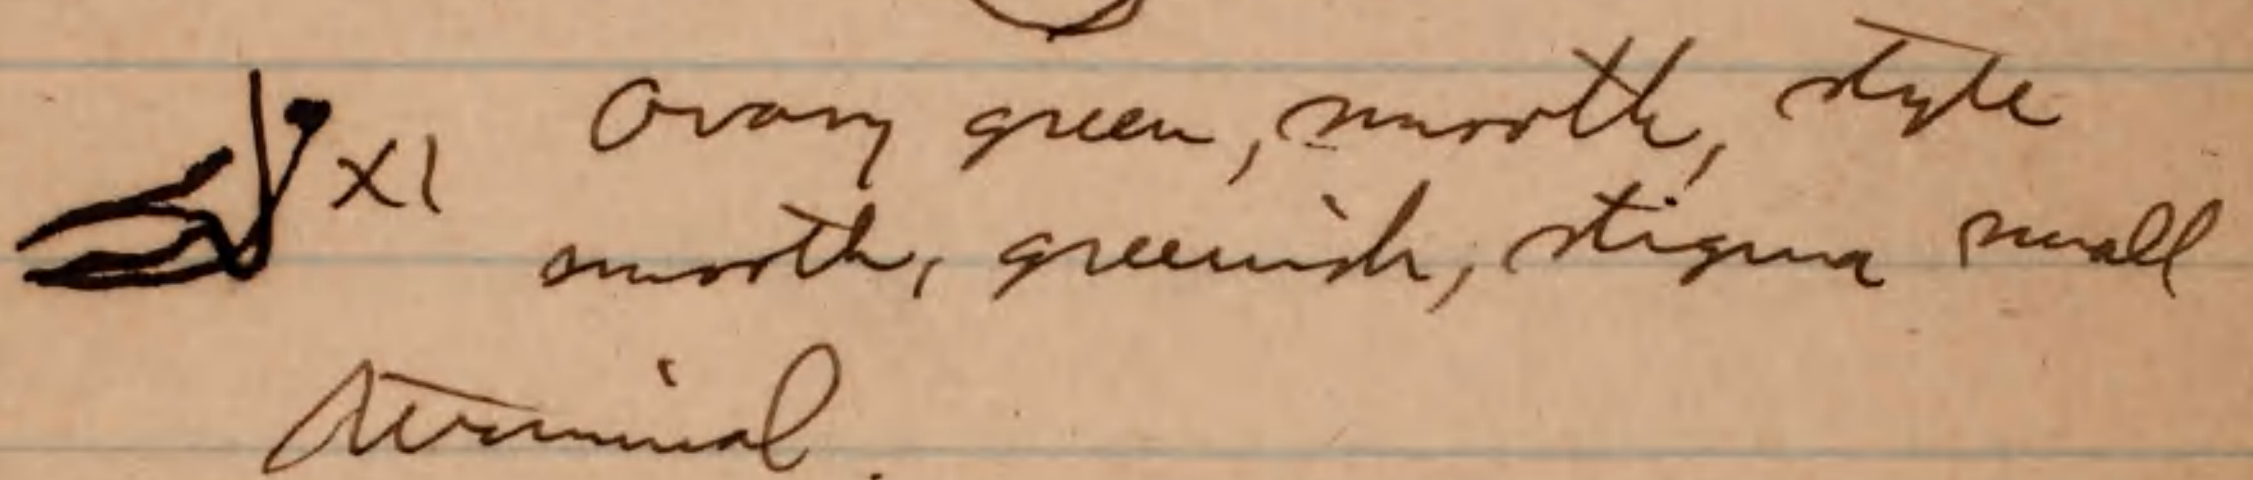 X1 Ovary green, smooth, style
smooth, greenish, stigma small
terminal.